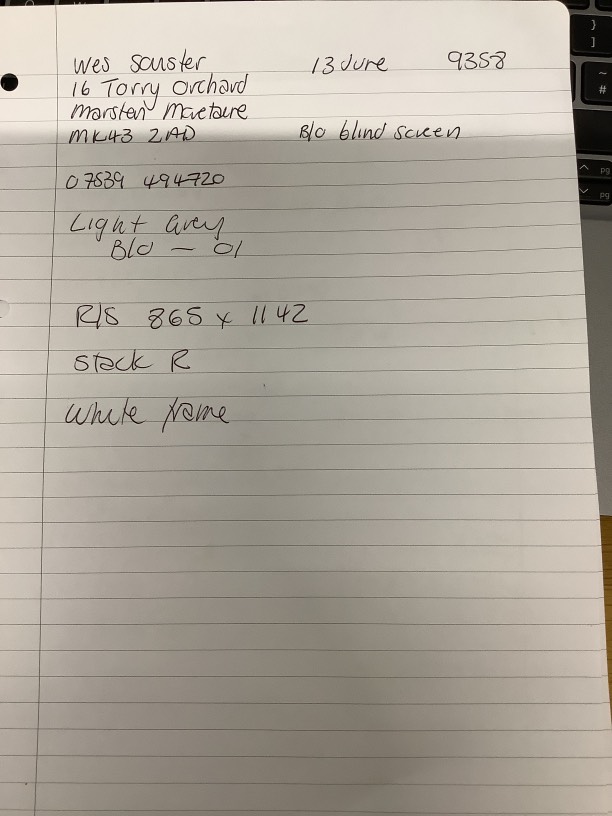 Wes Souster 13 June 9358
16 Torry Orchard
Marston Moretaine
MK43 2AD B/o blind screen
07539 494720
Light Grey
B/O - 01
R/S 865 x 1142
Stack R
White frame